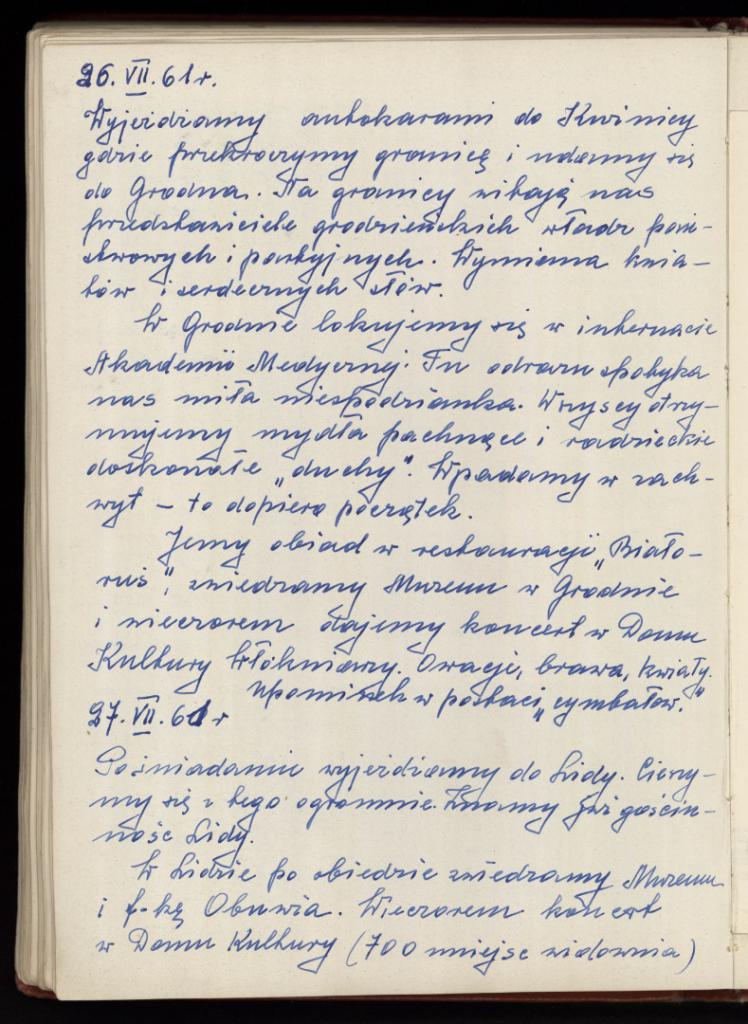 26. VII. 61 r.
Wyjeżdżamy autokarami do Kuźnicy
gdzie przekroczymy granicę i udamy się
do Grodna. Na granicy witają nas
przedstawiciele grodzieńskich władz pań-
stwowych i partyjnych. Wymiana kwia-
tów i serdecznych słów.
W Grodnie lokujemy się w internacie
Akademii Medycznej. Tu odrazu spotyka
nas miła niespodzianka. Wszyscy otrzy-
mujemy mydła pachnące i radzieckie
doskonałe „duchy". Wpadamy w zach-
wyt – to dopiero początek.
Jemy obiad w restauracji „Biało-
ruś", zwiedzamy Muzeum w Grodnie
i wieczorem dajemy koncert w Domu
Kultury Włókniarzy. Owacje, brawa, kwiaty.
Upominek w postaci „cymbałów."
27. VII. 61 r
Po śniadaniu wyjeżdżamy do Lidy. Cieszy-
my się z tego ogromnie. Znamy już gościn-
ność Lidy.
W Lidzie po obiedzie zwiedzamy Muzeum
i f-kę Obuwia. Wieczorem koncert
w Domu Kultury (700 mniejsc widownia)